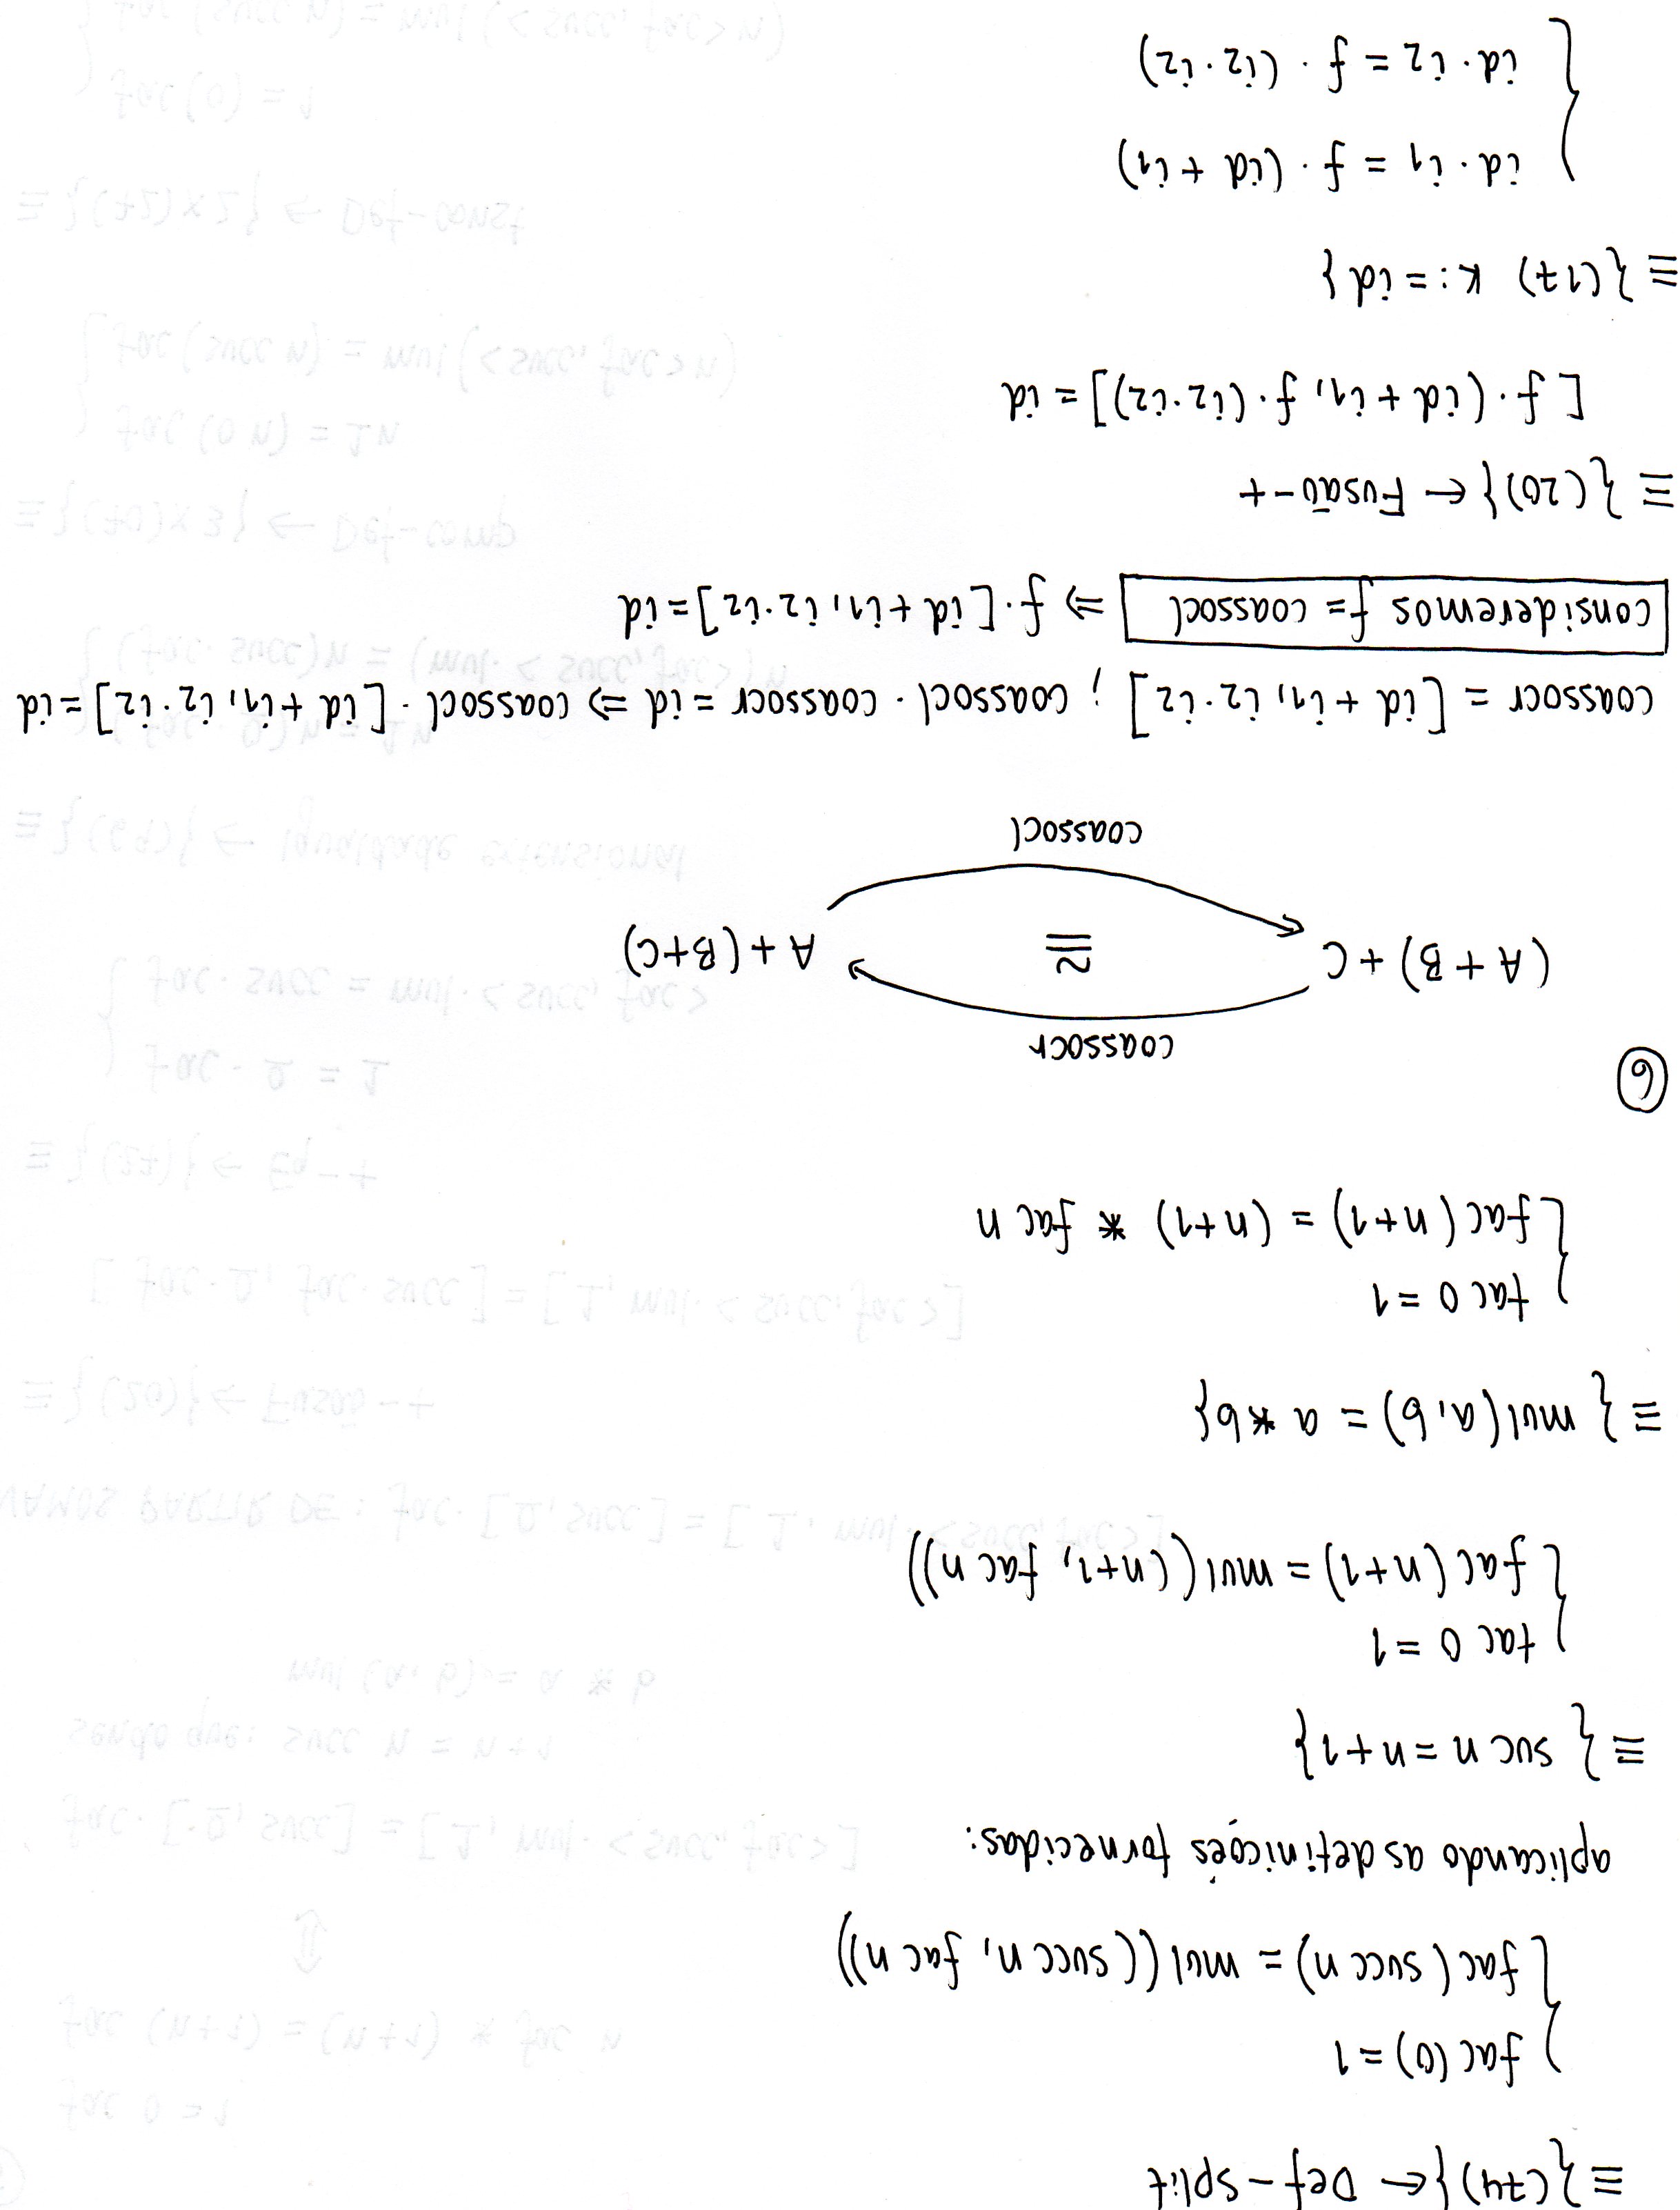 ≡{(74)} ← Def-Split
fac(0)=1
fac(succ n) = mul((succ n, fac n))
aplicando as definições fornecidas:
≡{ suc n = n+1}
fac 0 = 1
fac(n+1) = mul((n+1, fac n))
≡{ mul(a,b) = a * b}
fac 0 = 1
fac(n+1) = (n+1) * fac n
6
coassocr
(A+B)+C ≅ A+(B+C)
coassocl
coassocr = [id + i1, i2·i2] ; coassocl · coassocr = id ⇒ coassocl · [id + i1, i2·i2] = id
consideremos f = coassocl ⇒ f·[id + i1, i2·i2] = id
≡{(20)} ← Fusão-+
[f·(id + i1, f·(i2·i2)] = id
≡{(17) K:=id}
id·i1 = f·(id + i1)
id·i2 = f·(i2·i2)